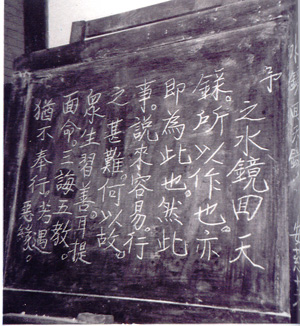 予
之水鏡回天
錄。所以作也。亦
即為此也。然此
事。說來容易。行
之甚難。何以故。
眾生習善耳提
面命。三誨五教。
猶不奉行。若遇
惡緣。